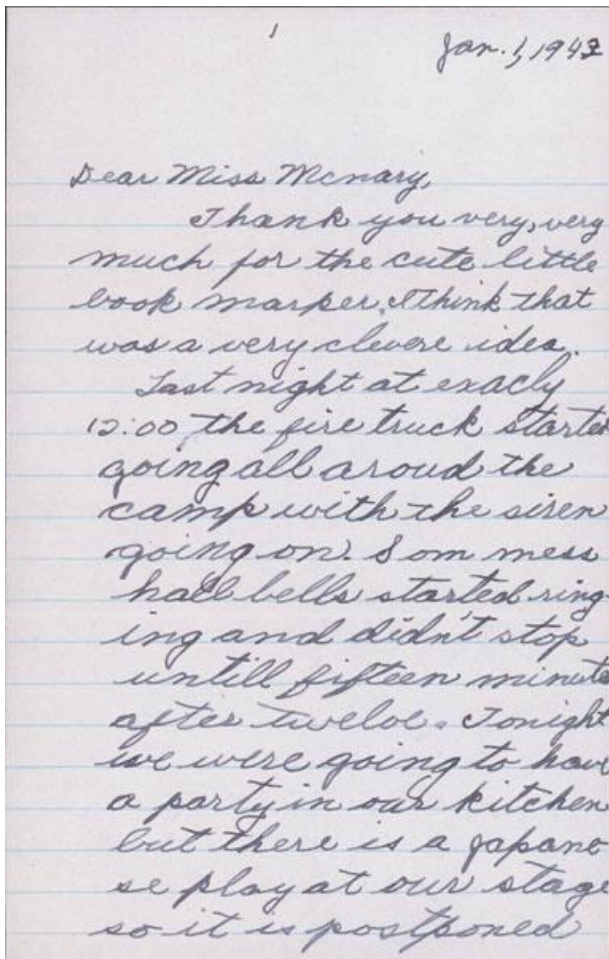 1
Jan. 1, 1943
Dear Miss Mcnary,
Thank you very, very
much for the cute little
book marker. I think that
was a very clevere idea.
Last night at exacly
12:00 the fire truck started
going all aroud the
camp with the siren
going on. Som mess
hall bells started ring-
ing and didn't stop
untill fifteen minute
after twelve. Tonight
we were going to have
a party in our kitchen
but there is a japane
se play at our stage
so it is postponed